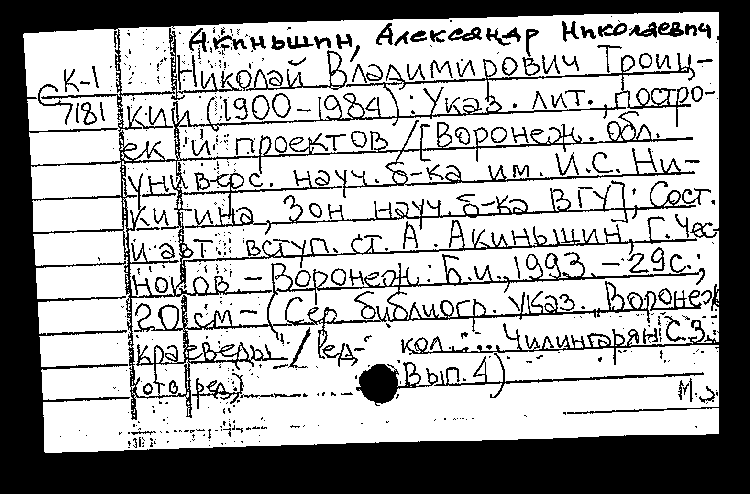 Акиньшин, Александр Николаевич.
К-1 Николай Владимирович Троиц-
7181 кий (1900-1984): Указ. лит., постро-
ек и проектов / [Воронеж. обл.
универс. науч. б-ка им. И.С. Ни-
китина, Зон науч. б-ка ВГУ]; Сост.
и авт. вступ. ст. А. Акиньшин, Г. Чес-
ноков. - Воронеж: Б.и., 1993. - 29с.;
20 см - (Сер. библиогр. указ. "Воронеж
краеведы" / Ред- кол.: ... Чилингарян С.З.
(отв. ред.) Вып. 4)